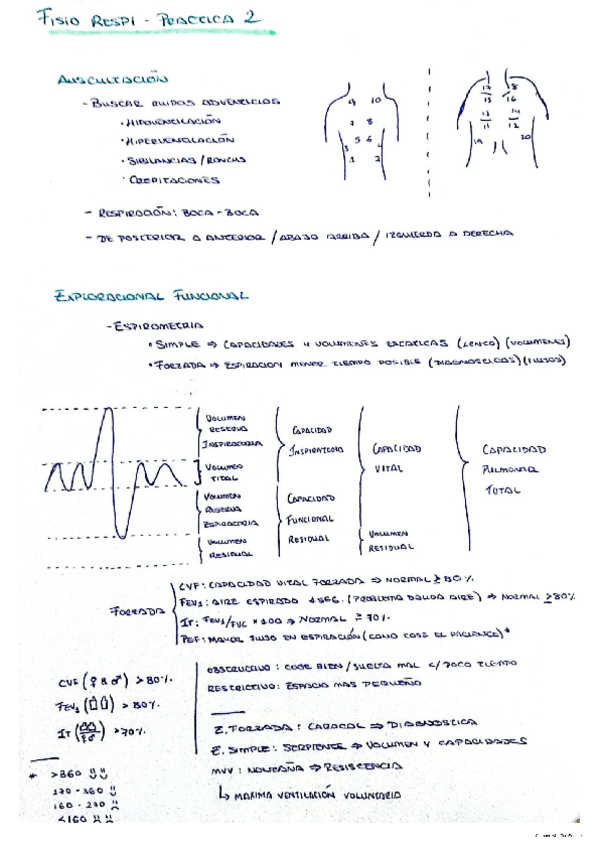 FISIO RESPI - PRACTICA 2
AUSCULTACIÓN
- BUSCAR RUIDOS ADVENCICIOS
• HIPOVENCILACIÓN
• HIPERVENCILACIÓN
• SIBILANCIAS / RONCUS
• CREPITACIONES
- RESPIRACIÓN: BOCA - BOCA
- DE POSTERIOR A ANTERIOR / ABAJO ARRIBA / IZQUIERDA A DERECHA
9 10
7 8
5 6
3 4
1 2
19 20
EXPLORACIONAL FUNCIONAL
- ESPIROMETRIA
• SIMPLE ⇒ CAPACIDADES Y VOLUMENES ESCATICAS (LENCO) (VOLUMENES)
• FORZADA ⇒ ESPIRACION MENOR TIEMPO POSIBLE (DIAGNOSTICAS) (FLUJOS)
VOLUMEN RESERVA INSPIRATORIA
VOLUMEN TIDAL
VOLUMEN RESERVA ESPIRATORIA
VOLUMEN RESIDUAL
CAPACIDAD INSPIRATORIA
CAPACIDAD FUNCIONAL RESIDUAL
CAPACIDAD VITAL
VOLUMEN RESIDUAL
CAPACIDAD PULMONAR TOTAL
FORZADA
CVF: CAPACIDAD VITAL FORZADA ⇒ NORMAL ≥ 80%
FEV1: AIRE ESPIRADO 1 SEG. (PROBLEMA SALIDA AIRE) ⇒ NORMAL ≥ 80%
IT: FEV1/FVC × 100 ⇒ NORMAL ≥ 70%
PEF: MAYOR FLUJO EN ESPIRACIÓN (COMO TOSE EL PACIENTE)*
CVF (♀ & ♂) > 80%
FEV1 > 80%
IT > 70%
* > 360
270 - 360
160 - 270
< 160
OBSTRUCTIVO: COGE BIEN / SUELTA MAL C/ POCO TIEMPO
RESTRICTIVO: ESPACIO MAS PEQUEÑO
E. FORZADA: CARACOL ⇒ DIAGNOSTICA
E. SIMPLE: SERPIENTE ⇒ VOLUMEN Y CAPACIDADES
MVV: MONTAÑA ⇒ RESISTENCIA
↳ MAXIMA VENTILACIÓN VOLUNTARIA